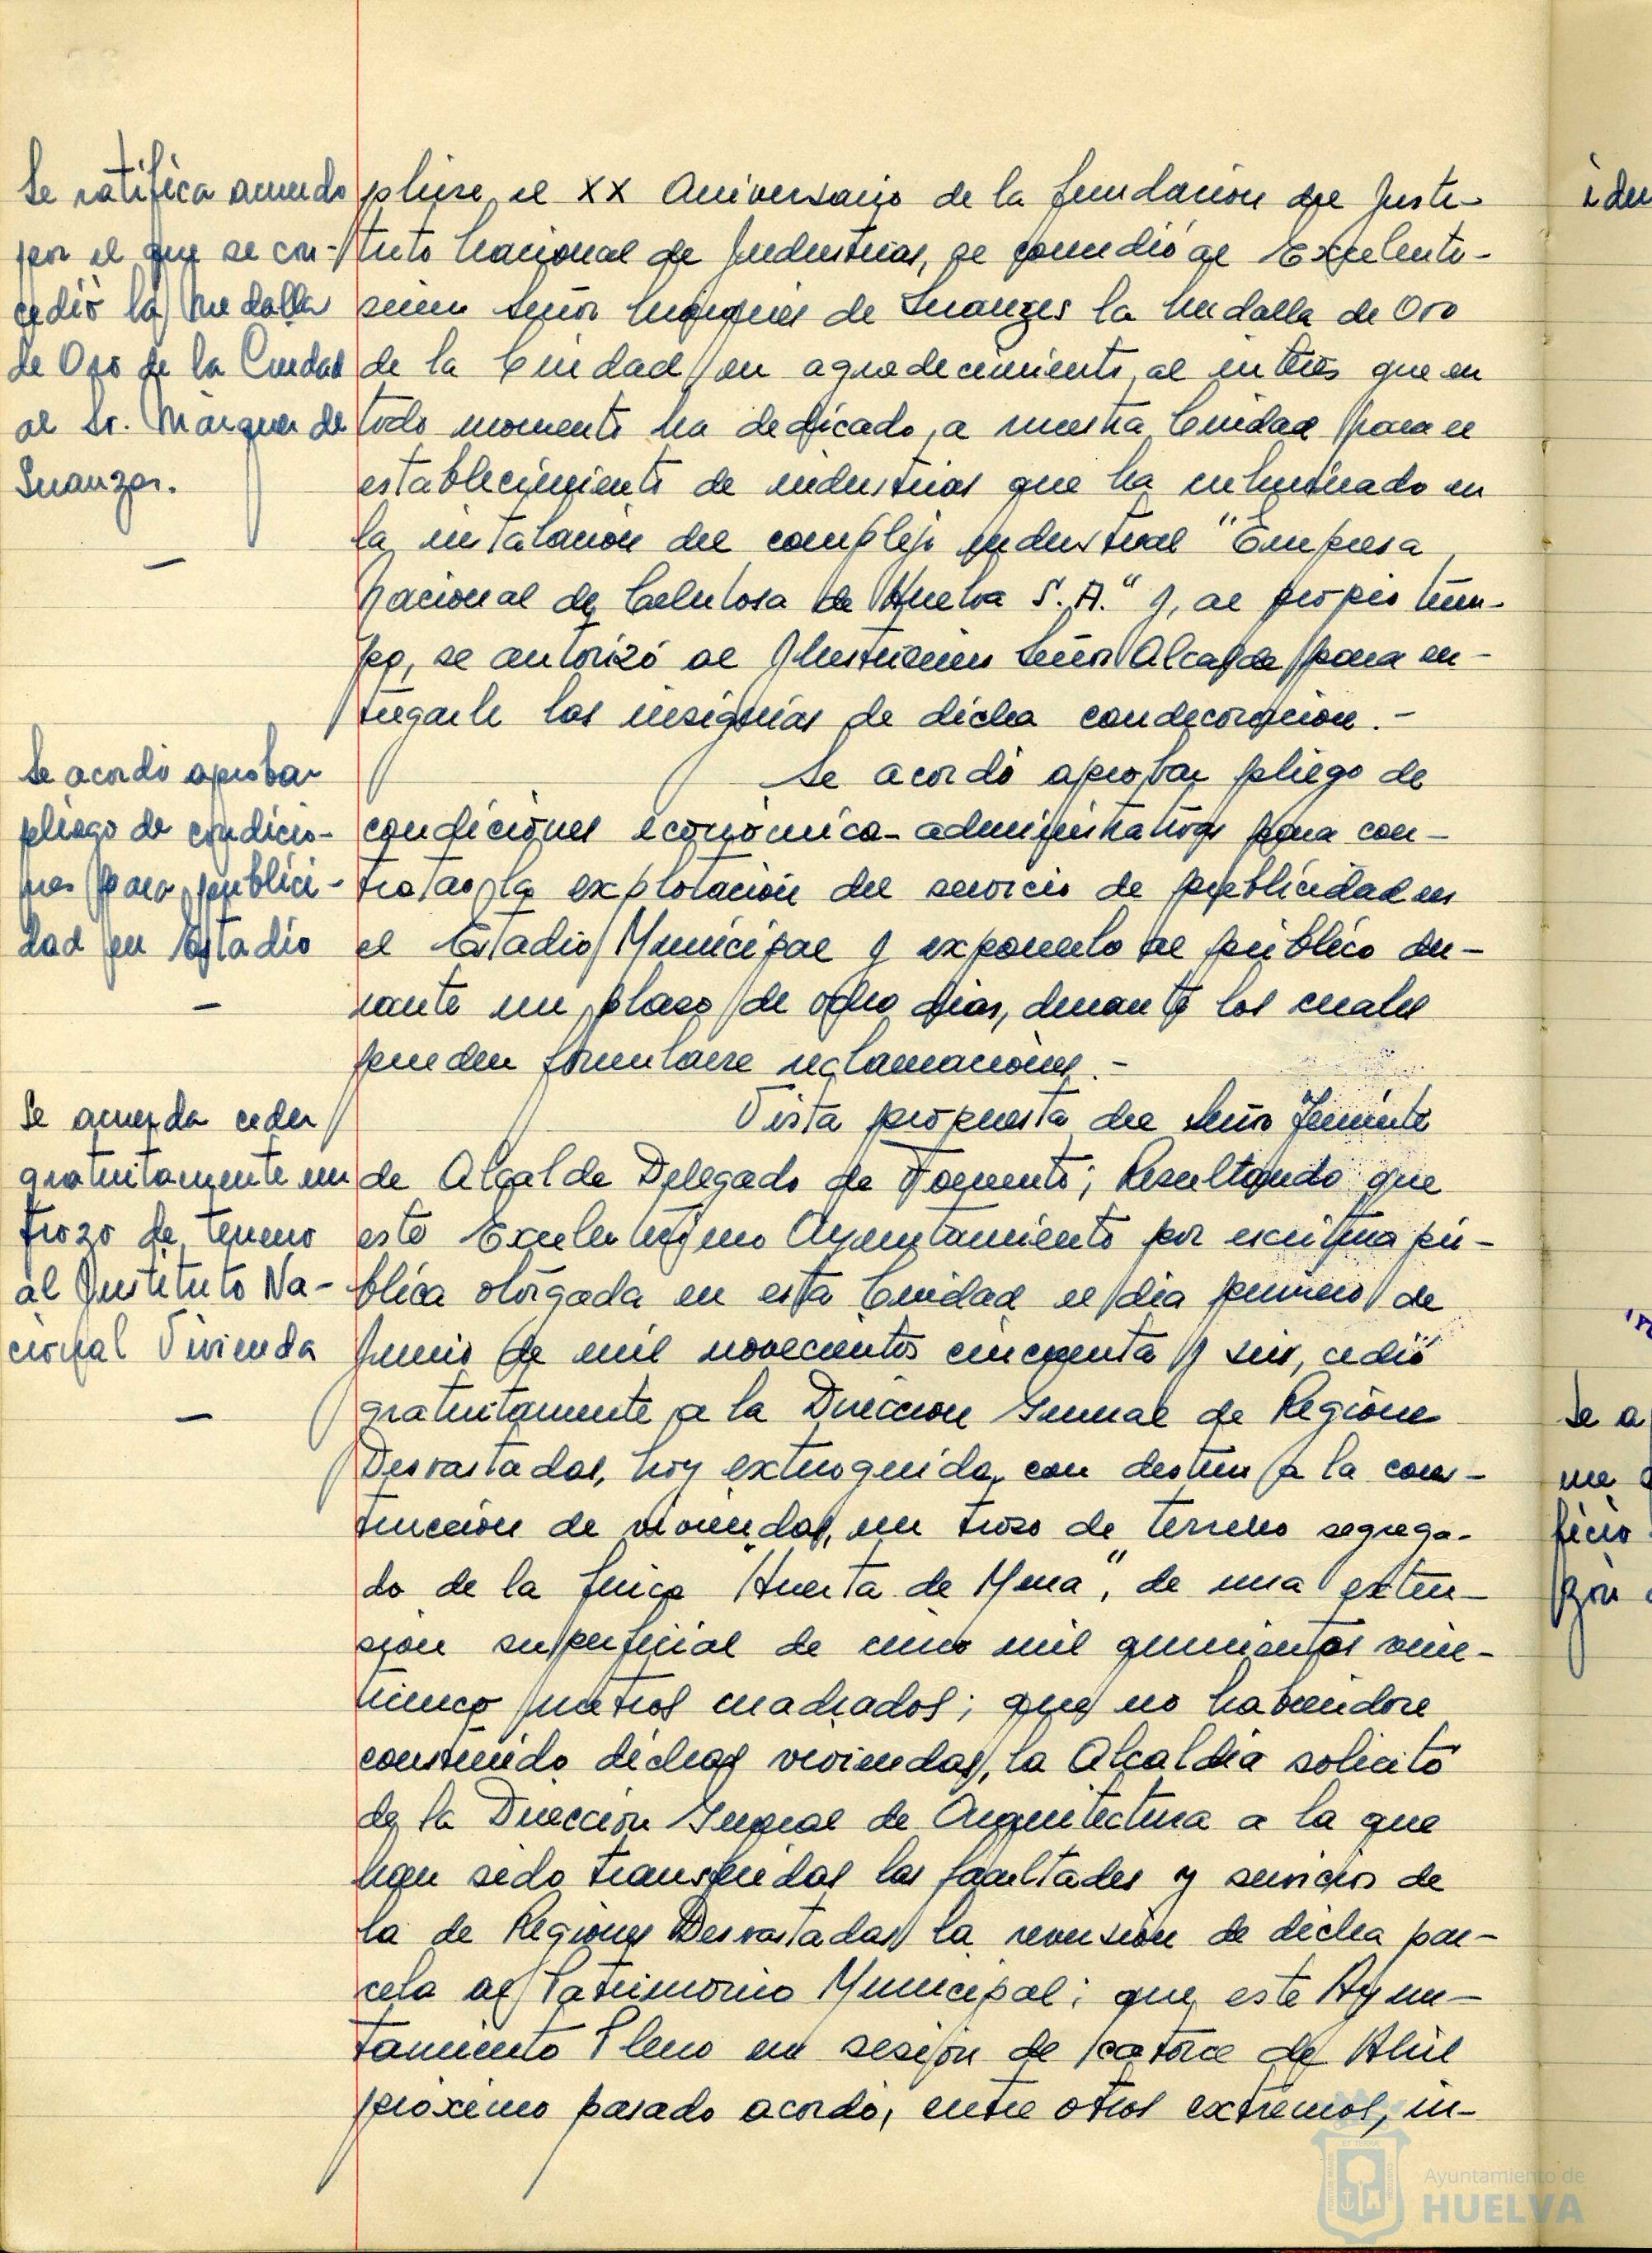 Se ratifica acuerdo
por el que se con-
cedió la Medalla
de Oro de la Ciudad
al Sr. Márques de
Suanzes.
—
plirse el XX Aniversario de la fundación del Insti-
tuto Nacional de Industrias, se concedió al Excelentí-
simo Señor Marqués de Suanzes la Medalla de Oro
de la Ciudad en agradecimiento al interés que en
todo momento ha dedicado a nuestra Ciudad para el
establecimiento de industrias que ha culminado en
la instalación del complejo industrial "Empresa
Nacional de Celulosa de Huelva S.A." y, al propio tiem-
po, se autorizó al Ilustrísimo Señor Alcalde para en-
tregarle las insignias de dicha condecoración.-
Se acordó aprobar
pliego de condicio-
nes para publici-
dad en Estadio
—
Se acordó aprobar pliego de
condiciones económico-administrativas para con-
tratar la explotación del servicio de publicidad en
el Estadio Municipal y exponerlo al público du-
rante un plazo de ocho días, durante los cuales
pueden formularse reclamaciones.-
Se acuerda ceder
gratuitamente un
trozo de terreno
al Instituto Na-
cional Vivienda
—
Vista propuesta del Señor Teniente
de Alcalde Delegado de Fomento; Resultando que
este Excelentísimo Ayuntamiento por escritura pú-
blica otorgada en esta Ciudad el día primero de
Junio de mil novecientos cincuenta y seis, cedió
gratuitamente a la Dirección General de Regiones
Devastadas, hoy extinguida, con destino a la cons-
trucción de viviendas, un trozo de terreno segrega-
do de la finca "Huerta de Mena", de una exten-
sión superficial de cinco mil quinientos vein-
ticinco metros cuadrados; que no habiéndose
construido dichas viviendas, la Alcaldía solicitó
de la Dirección General de Arquitectura a la que
han sido transferidas las facultades y servicios de
la de Regiones Devastadas la reversión de dicha par-
cela al Patrimonio Municipal; que este Ayun-
tamiento Pleno en sesión de catorce de Abril
próximo pasado acordó, entre otros extremos, in-
Se a
una
ficio
Ayuntamiento de
HUELVA